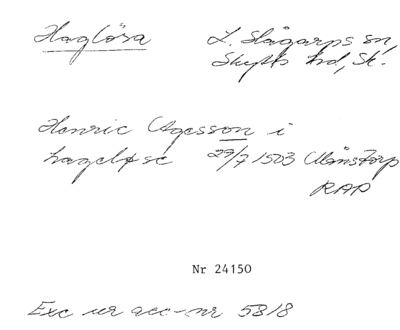 Haglösa L. Slågarps sn,
Skytts hd, Sk.
Henric Agesson i
hageløse 29/7 1503 Månstorp
RAP
Nr 24150
Exc ur acc-nr 5318